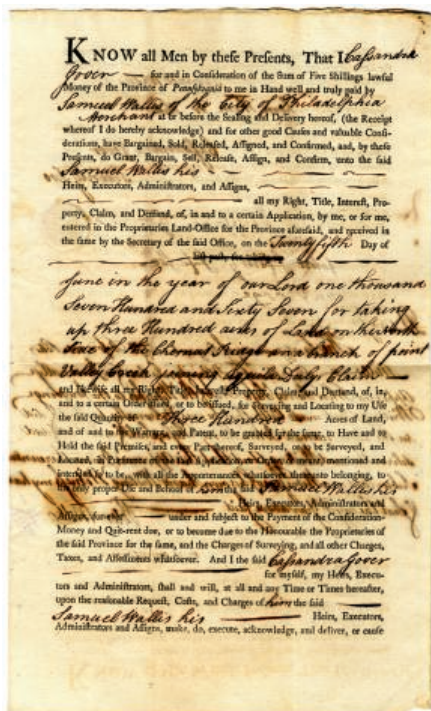 KNOW all Men by these Presents, That I Cassandra
Gover — for and in Consideration of the Sum of Five Shillings lawful
Money of the Province of Pennsylvania to me in Hand well and truly paid by
Samuel Wallis of the City of Philadelphia
Merchant at or before the Sealing and Delivery hereof, (the Receipt
whereof I do hereby acknowledge) and for other good Causes and valuable Consi-
derations, have Bargained, Sold, Released, Assigned, and Confirmed, and, by these
Presents, do Grant, Bargain, Sell, Release, Assign, and Confirm, unto the said
Samuel Wallis his
Heirs, Executors, Administrators, and Assigns,
all my Right, Title, Interest, Pro-
perty, Claim, and Demand, of, in and to a certain Application, by me, or for me,
entered in the Proprietaries Land-Office for the Province aforesaid, and received in
the same by the Secretary of the said Office, on the Twenty fifth Day of
June in the year of our Lord one thousand
Seven Hundred and Sixty Seven for taking
up three Hundred acres of Land on the North
Side of the Chesnut Ridge on a branch of point
Valley Creek joining Daly Claim
and likewise all my Right, Title, Interest, Property, Claim and Demand, of, in,
and to a certain Order issued, or to be issued, for Surveying and Locating to my Use
the said Quantity of Three Hundred Acres of Land,
and of and to the Warrant and Patent, to be granted for the same, to Have and to
Hold the said Premises, and every Part thereof, Surveyed, or to be Surveyed, and
Located, in Pursuance of the said Application, or Order, or meant, mentioned and
intended so to be, with all the Appurtenances whatsoever thereunto belonging, to
the only proper Use and Behoof of him the said Samuel Wallis his
Heirs, Executors, Administrators and
Assigns, for ever under and subject to the Payment of the Consideration-
Money and Quit-rent due, or to become due to the Honourable the Proprietaries of
the said Province for the same, and the Charges of Surveying, and all other Charges,
Taxes, and Assessments whatsoever. And I the said Cassandra Gover
for myself, my Heirs, Execu-
tors and Administrators, shall and will, at all and any Time or Times hereafter,
upon the reasonable Request, Costs, and Charges of him the said
Samuel Wallis his Heirs, Executors,
Administrators and Assigns, make, do, execute, acknowledge, and deliver, or cause